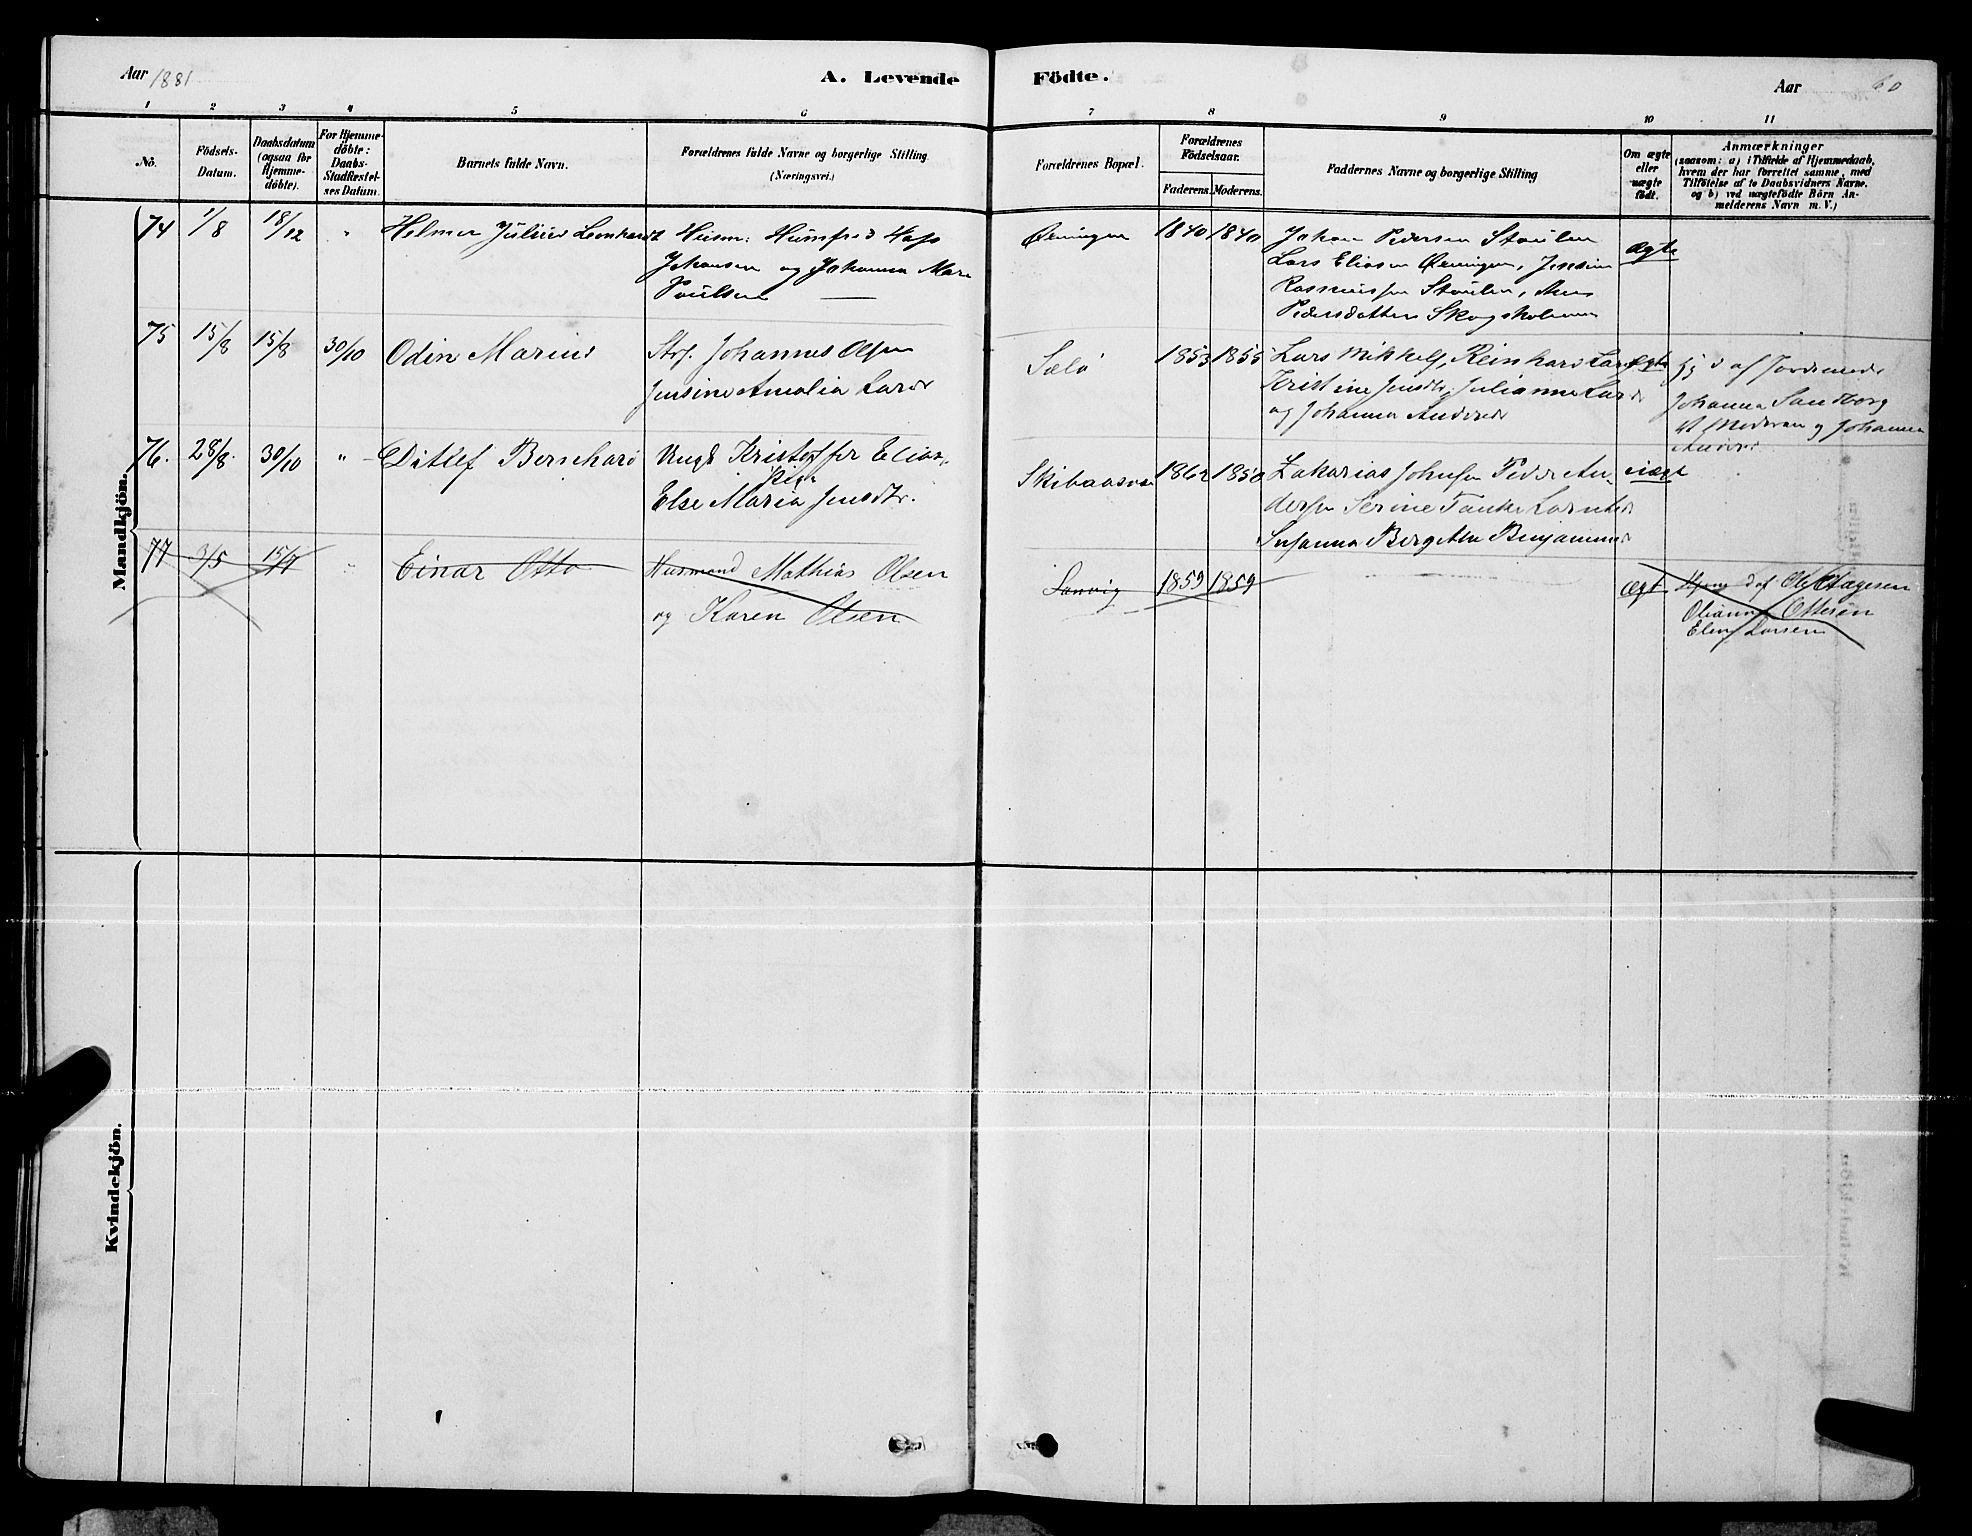 Aar 1881
A. Levende
Födte.
Aar 60
1 2 3 4 5 6 7 8 9 10 11
No.
Födsels-
Datum.
Daabsdatum
(ogsaa for
Hjemme-
döbte).
For Hjemme-
döbte:
Daabs-
Stadfæstel-
ses Datum.
Barnets fulde Navn.
Forældrenes fulde Navne og borgerlige Stilling
(Næringsvei.)
Forældrenes Bopæl.
Forældrenes
Födselsaar.
Faderens. Moderens.
Faddernes Navne og borgerlige Stilling
Om ægte
eller
uægte
födt.
Anmærkninger
(saasom: a) i Tilfælde af Hjemmedaab,
hvem der har forrettet samme, med
Tilföielse af to Daabsvidners Navne.
og b) ved uægtefödte Börn An-
melderens Navn m. V.)
Mandkjön.
74 1/8 18/12 " Helmer Julius Leonhardt
Husm:
Johansen og Johanna Mare
Poulsen
Øeningen
1840 1840
Johan Pedersen Staulen
Lars Eliasen Øeningen, Jensine
Rasmussen Staulen,
Pedersdatter Skogsholmen
ægte
75 15/8 15/8 30/10 Odin Marius
Johannes Olsen
Jensine Amalia Larsdr
Sælö
1853 1855
Lars Mikkels, Reinhard Lars
Kristine Jensdtr, Julianne Larsdr
og Johanna Andersdr
ægte
Hj d af Jordemoder
Johanna Sandberg
Moderen og Johanna
Andersdr
76. 28/8. 30/10 " Ditlef Bernhard
Ungk Kristoffer Elias.
Pige
Else Maria Jensdtr.
Skibaasvær
1862 1850
Zakarias Johnsen Peder An-
dersen Serine
Susanna Bergitta Benjaminsdr
uægt
77 3/5 15/7 " Einar Otto
Husmand Mathias Olsen
og Karen Olsen
Sanvig
1859 1859
ægt
Hjem d af Ole Aagesen
Olianna Otterøn
Elen Larsen
Kvindekjön.